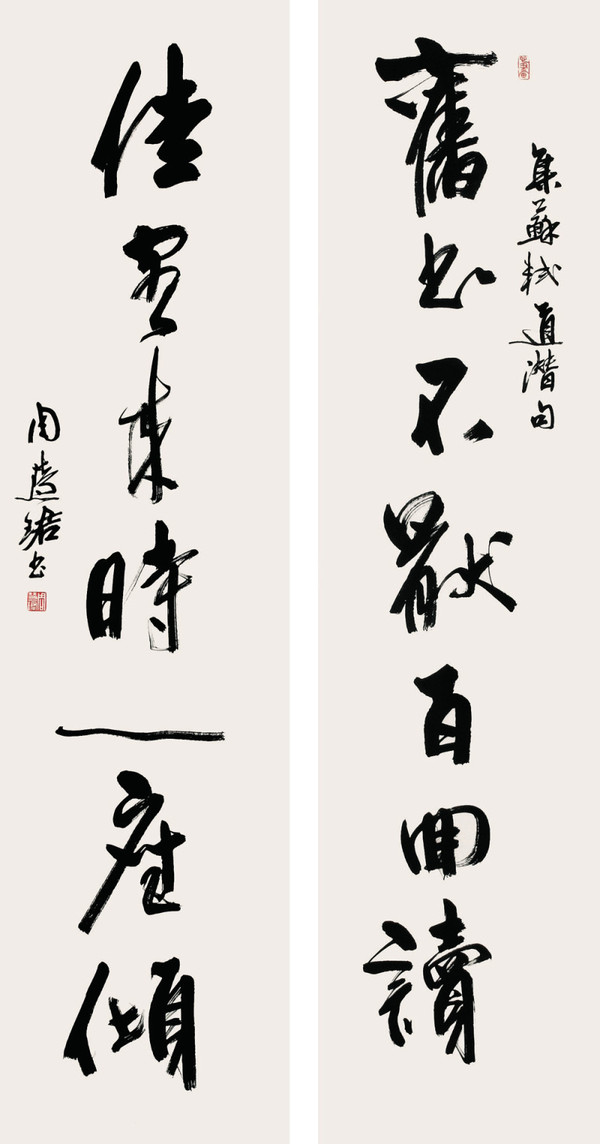 集蘇軾道潛句
舊書不厭百回讀
佳客來時一座傾
周慧珺書